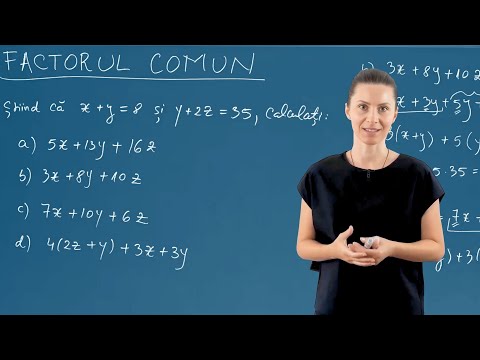 FACTORUL COMUN
Știind că x+y=8 și y+2z=35, calculați:
a) 5x+13y+16z
b) 3x+8y+10z
c) 7x+10y+6z
d) 4(2z+y)+3x+3y
3x+8y+10z
3x+3y+5y
3(x+y)+5(y
5·35=
=7x+
y)+3(